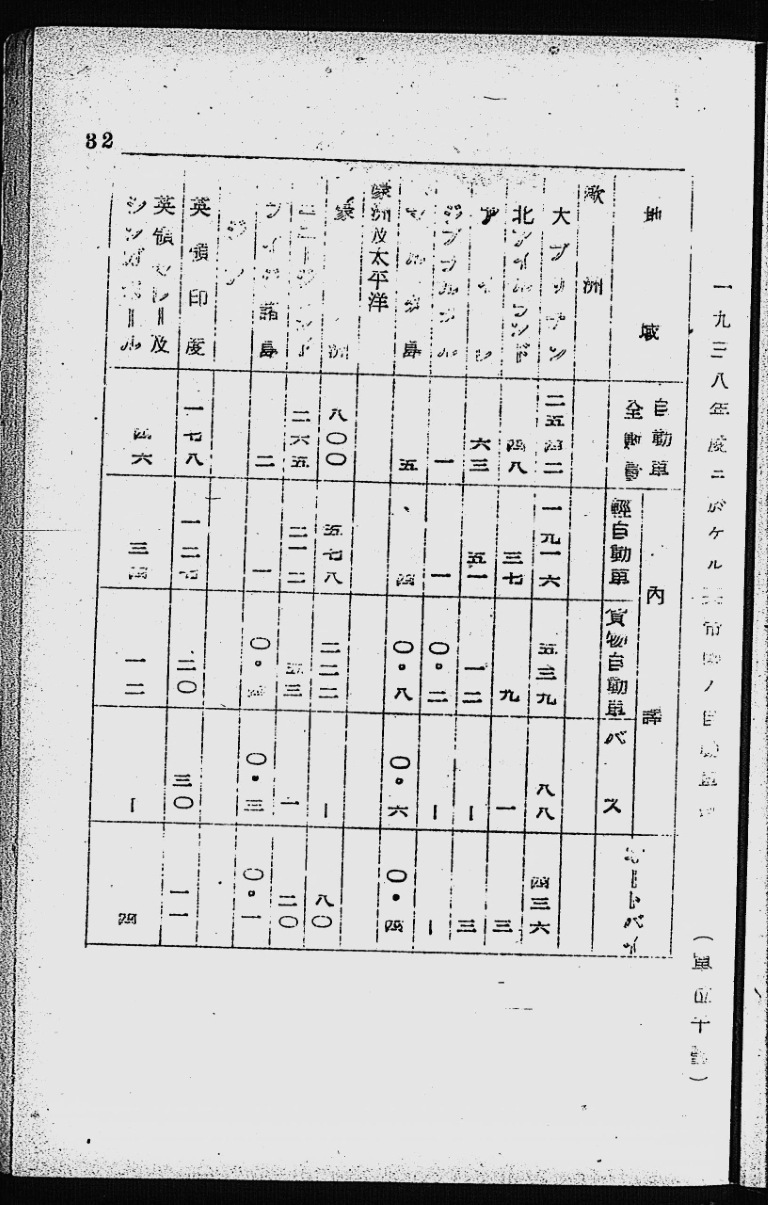 32
一九三八年度ニ於ケル
(單位千臺)
地域
自動車全臺數
內譯
輕自動車
貨物自動車
バス
オートバイ
歐洲
大ブリテン 二五四二 一九一六 五三九 八八 四三六
北アイルランド 四八 三七 九 一 三
アイレ 六三 五一 一二 ー 三
ジブラルタル 一 一 〇・二 ー ー
マルタ島 五 四 〇・八 〇・六 〇・四
濠洲及太平洋
濠洲 八〇〇 五七八 二二二 ー 八〇
ニュージランド 二六五 二一二 五三 一 二〇
フィジ諸島 二 一 〇・四 〇・三 〇・一
英領印度 一七八 一二七 二〇 三〇 一一
英領マレー及シンガポール 四六 三四 一二 ー 四